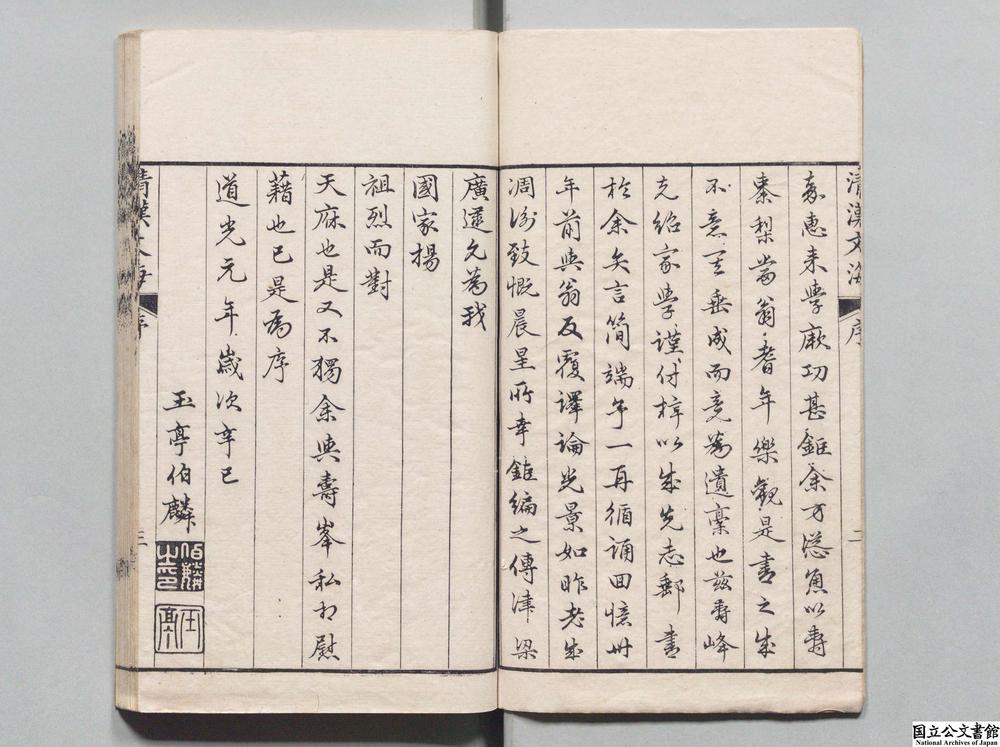 清漢文海 序 二
嘉惠来學厥功甚鉅余方慫恿以壽
棗梨當翁耆年樂觀是書之成
不意工垂成而竟為遺稾也茲壽峰
克紹家學謹付梓以成先志郵書
於余 言簡端 一再循誦回憶卅
年前與翁反覆譯論光景如昨老成
凋謝致慨晨星所幸鉅編之傳津梁
廣遠允為我
國家揚
祖烈而對
天庥也是又不獨余與壽峯私相慰
藉也已是為序
道光元年歲次辛巳
玉亭伯麟
伯麟之印
玉亭
清漢文海 序 三
国立公文書館
National Archives of Japan